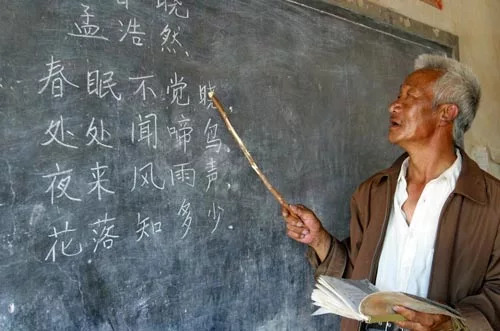 晓
孟浩然.
春眠不觉晓,
处处闻啼鸟.
夜来风雨声,
花落知多少.